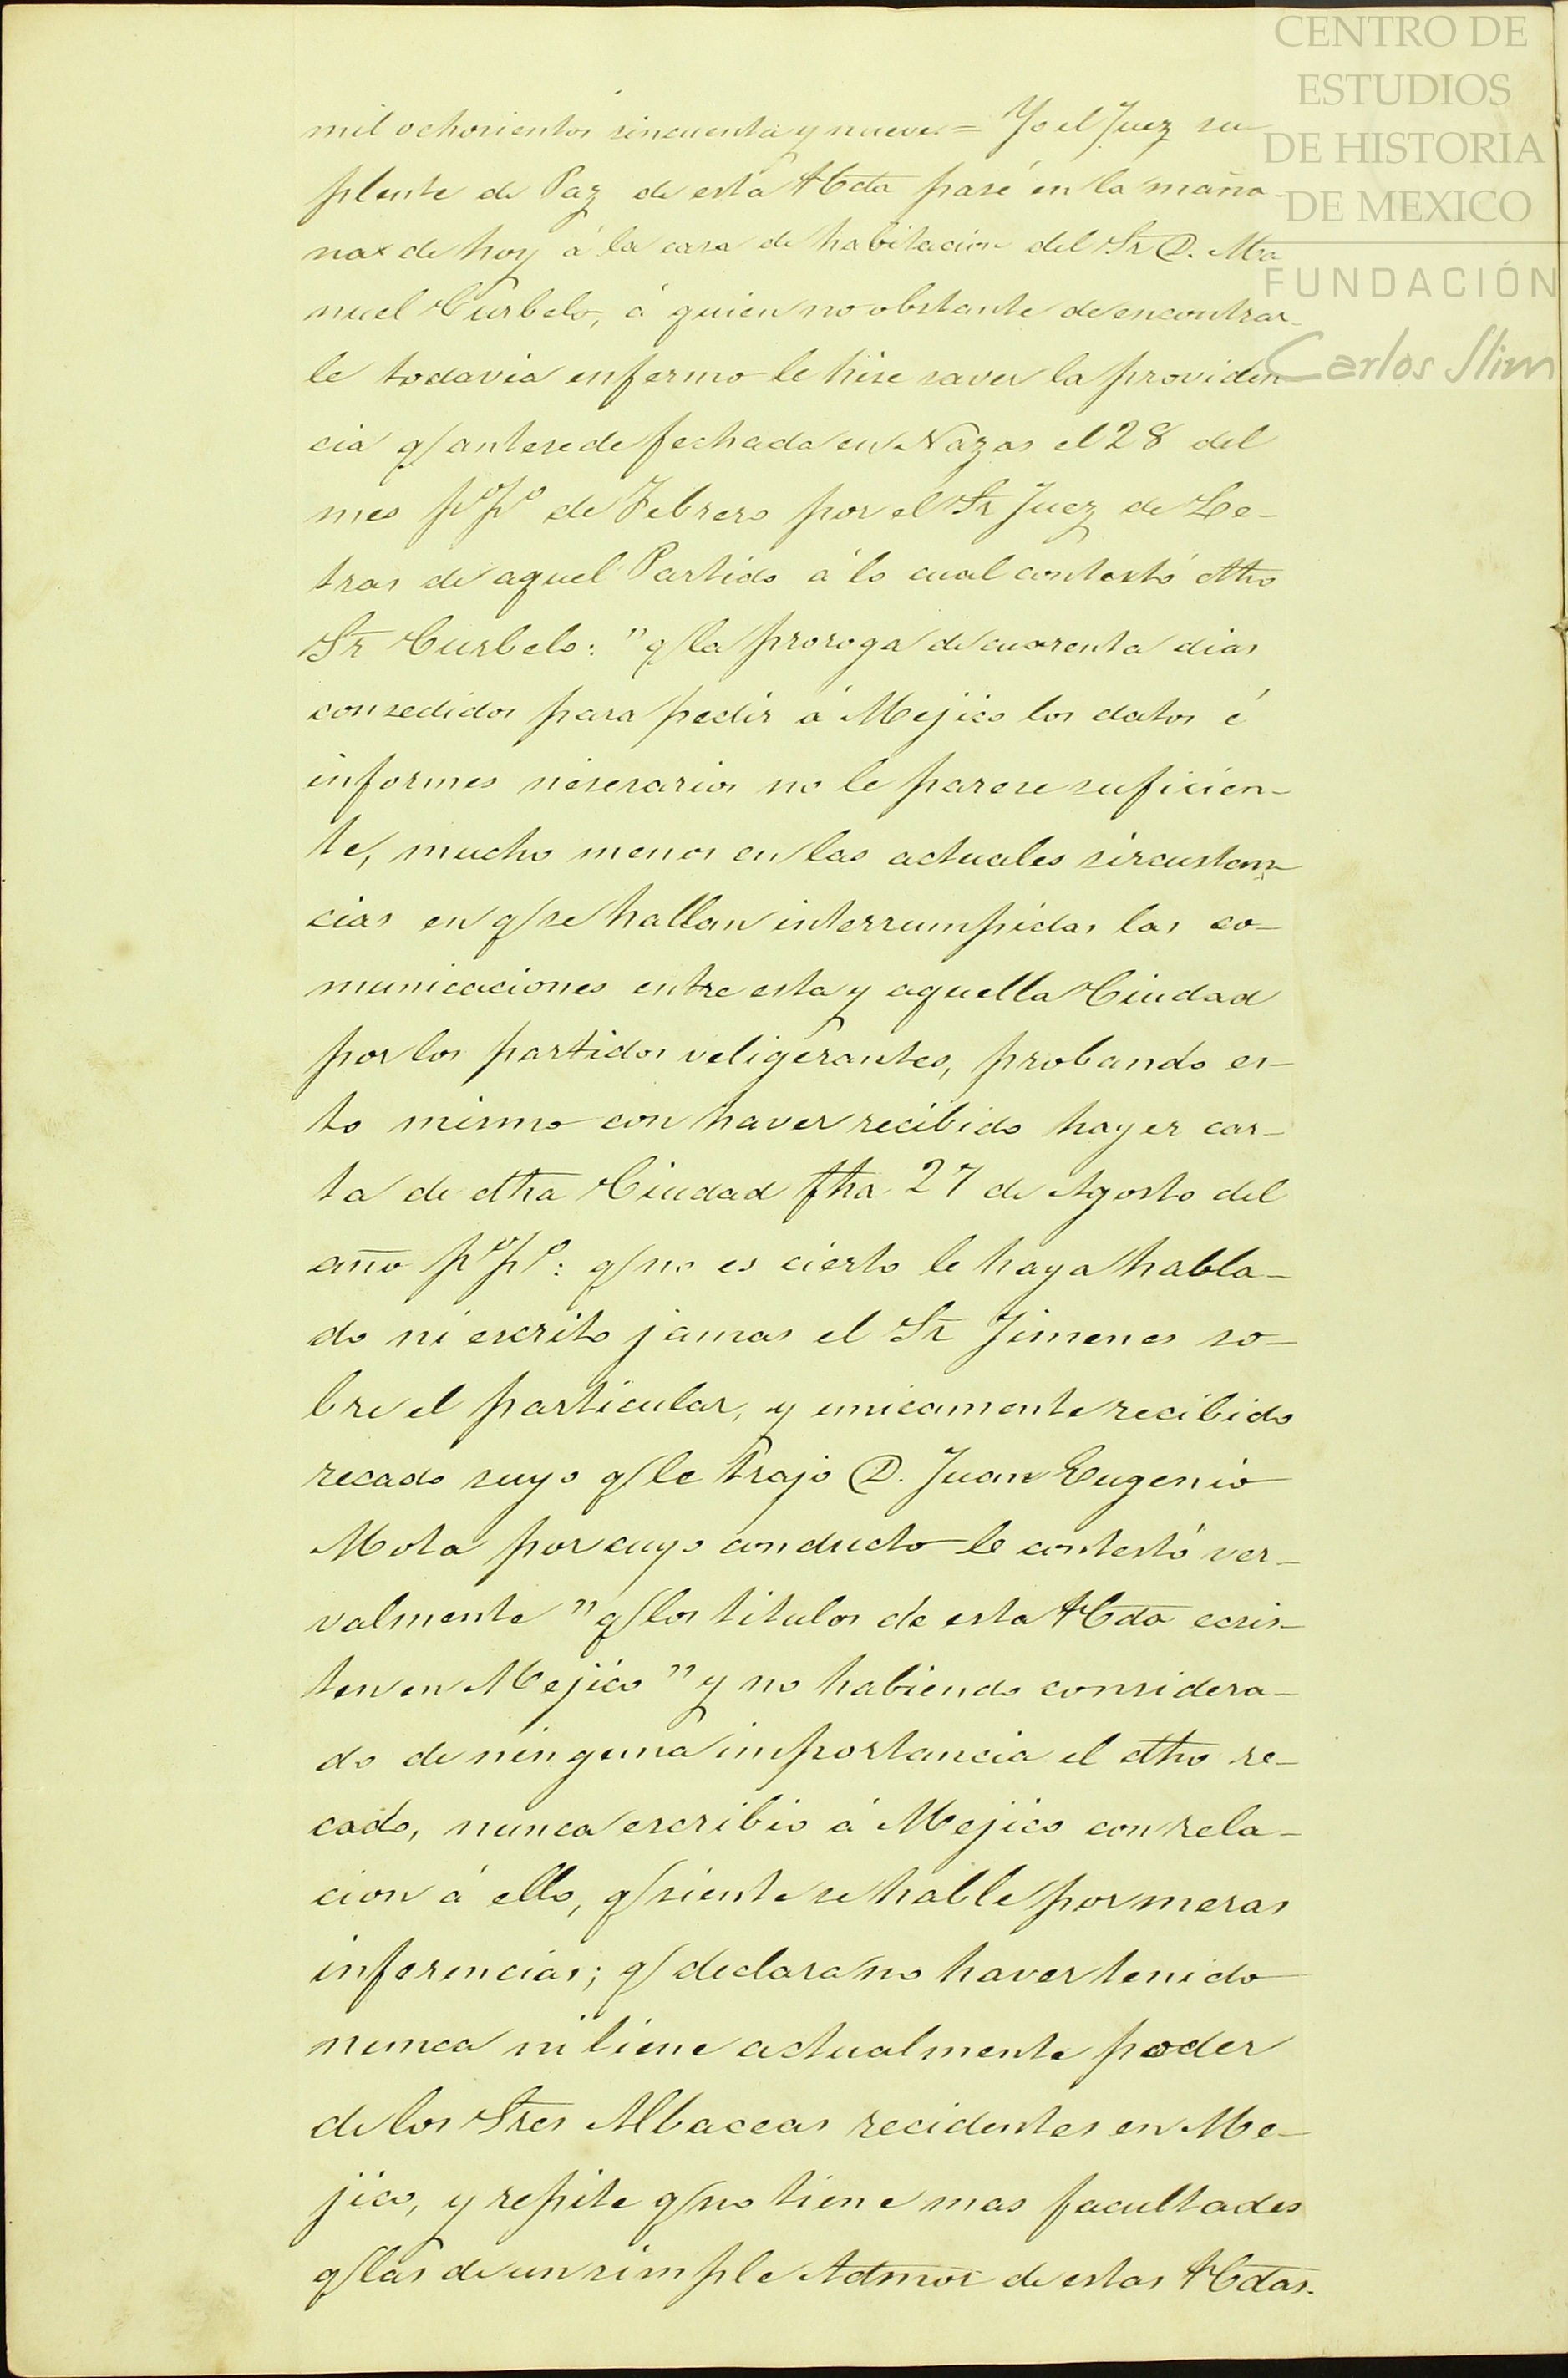 CENTRO DE
ESTUDIOS
DE HISTORIA
DE MEXICO
FUNDACIÓN
Carlos Slim
mil ochosientos sincuenta y nueve = Yo el Juez su
plente de Paz de esta Hda pasé en la maña-
na de hoy á la casa de habitacion del Sr D. Ma
nuel Curbelo, á quien no obstante de encontrar-
le todavia enfermo le hise saver la providen
cia q/ antesede fechada en Nazas el 28 del
mes pº pº de Febrero por el Sr Juez de Le-
tras de aquel Partido á lo cual contestó dho
Sr Curbelo: "q/ la proroga de cuarenta dias
consedidos para pedir á Mejico los datos é
informes nesesarios no le parese suficien-
te, mucho menos en las actuales sircustan-
cias en q/ se hallan interrumpidas las co-
municaciones entre esta y aquella Ciudad
por los partidos veligerantes, probando es-
to mismo con haver recibido hayer car-
ta de dha Ciudad fha 27 de Agosto del
año pº pº: q/ no es cierto le haya habla-
do ni escrito jamas el Sr Jimenes so-
bre el particular, y unicamente recibido
recado suyo q/ le trajo D. Juan Eugenio
Mota por cuyo conducto le contestó ver-
valmente "q/ los titulos de esta Hda ecsis-
ten en Mejico" y no habiendo considera-
do de ninguna importancia el dho re-
cado, nunca escribio á Mejico con rela-
cion á ello, q/ siente se hable por meras
inferencias; q/ declara no haver tenido
nunca ni tiene actualmente poder
de los Sres Albaceas recidentes en Me-
jico, y repite q/ no tiene mas facultades
q/ las de un simple Admor de estas Hdas.